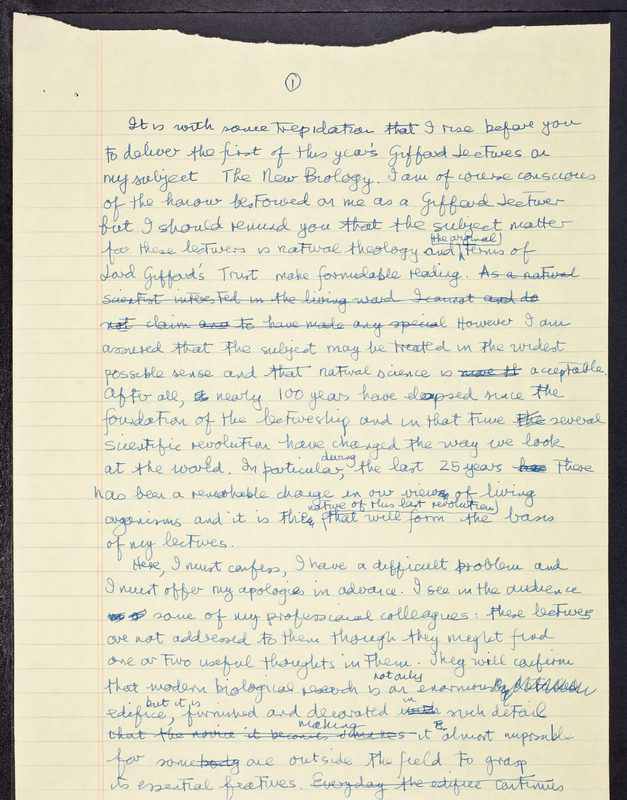 1
It is with some trepidation that I rise before you
to deliver the first of this year's Gifford Lectures on
my subject The New Biology. I am of course conscious
of the honour bestowed on me as a Gifford Lecturer
but I should remind you that the subject matter
for these lecturers is natural theology and (the original) terms of
Lord Gifford's Trust make formidable reading. As a natural
scientist interested in the living world I cannot and do
not claim to have made any special However I am
assured that the subject may be treated in the widest
possible sense and that natural science is acceptable.
After all, nearly 100 years have elapsed since the
foundation of the lectureship and in that time the several
scientific revolution have changed the way we look
at the world. In particular, during the last 25 years has there
has been a remarkable change in our views of living
organisms and it is the nature of this last revolution that will form the basis
of my lectures.
Here, I must confess, I have a difficult problem and
I must offer my apologies in advance. I see in the audience
some of my professional colleagues: these lectures
are not addressed to them though they might find
one or two useful thoughts in them. They will confirm
that modern biological research is not only an enormous
edifice, but it is furnished and decorated in such detail
that the novice it becomes making it almost impossible
for somebody are outside the field to grasp
its essential features. Everyday the edifice continues